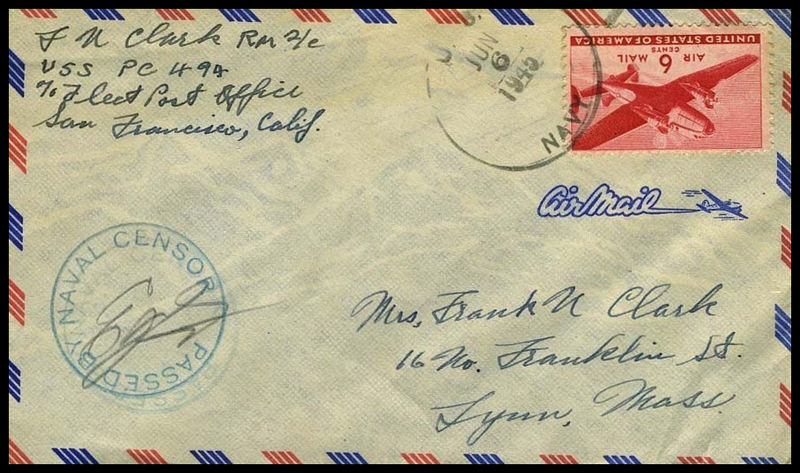 F N Clark Rm 2/c
USS PC 494
c/o Fleet Post Office
San Francisco, Calif.
U. S.
JUN
6
1945
NAVY
UNITED STATES OF AMERICA
6 CENTS
AIR MAIL
Air Mail
PASSED BY NAVAL CENSOR
Mrs, Frank N Clark
16 No. Franklin St.
Lynn, Mass.